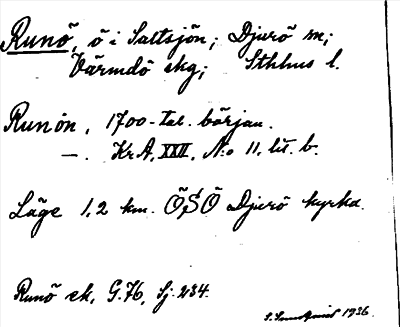 Runö, ö i Saltsjön; Djurö sn;
Värmdö skg; Sthlms l.
Runön, 1700-tal. början.
—. KrA, XXII, N:o 11, lit. b.
Läge 1,2 km. ÖSÖ Djurö kyrka.
Runö ek, G.76, Sj. 234.
1936.